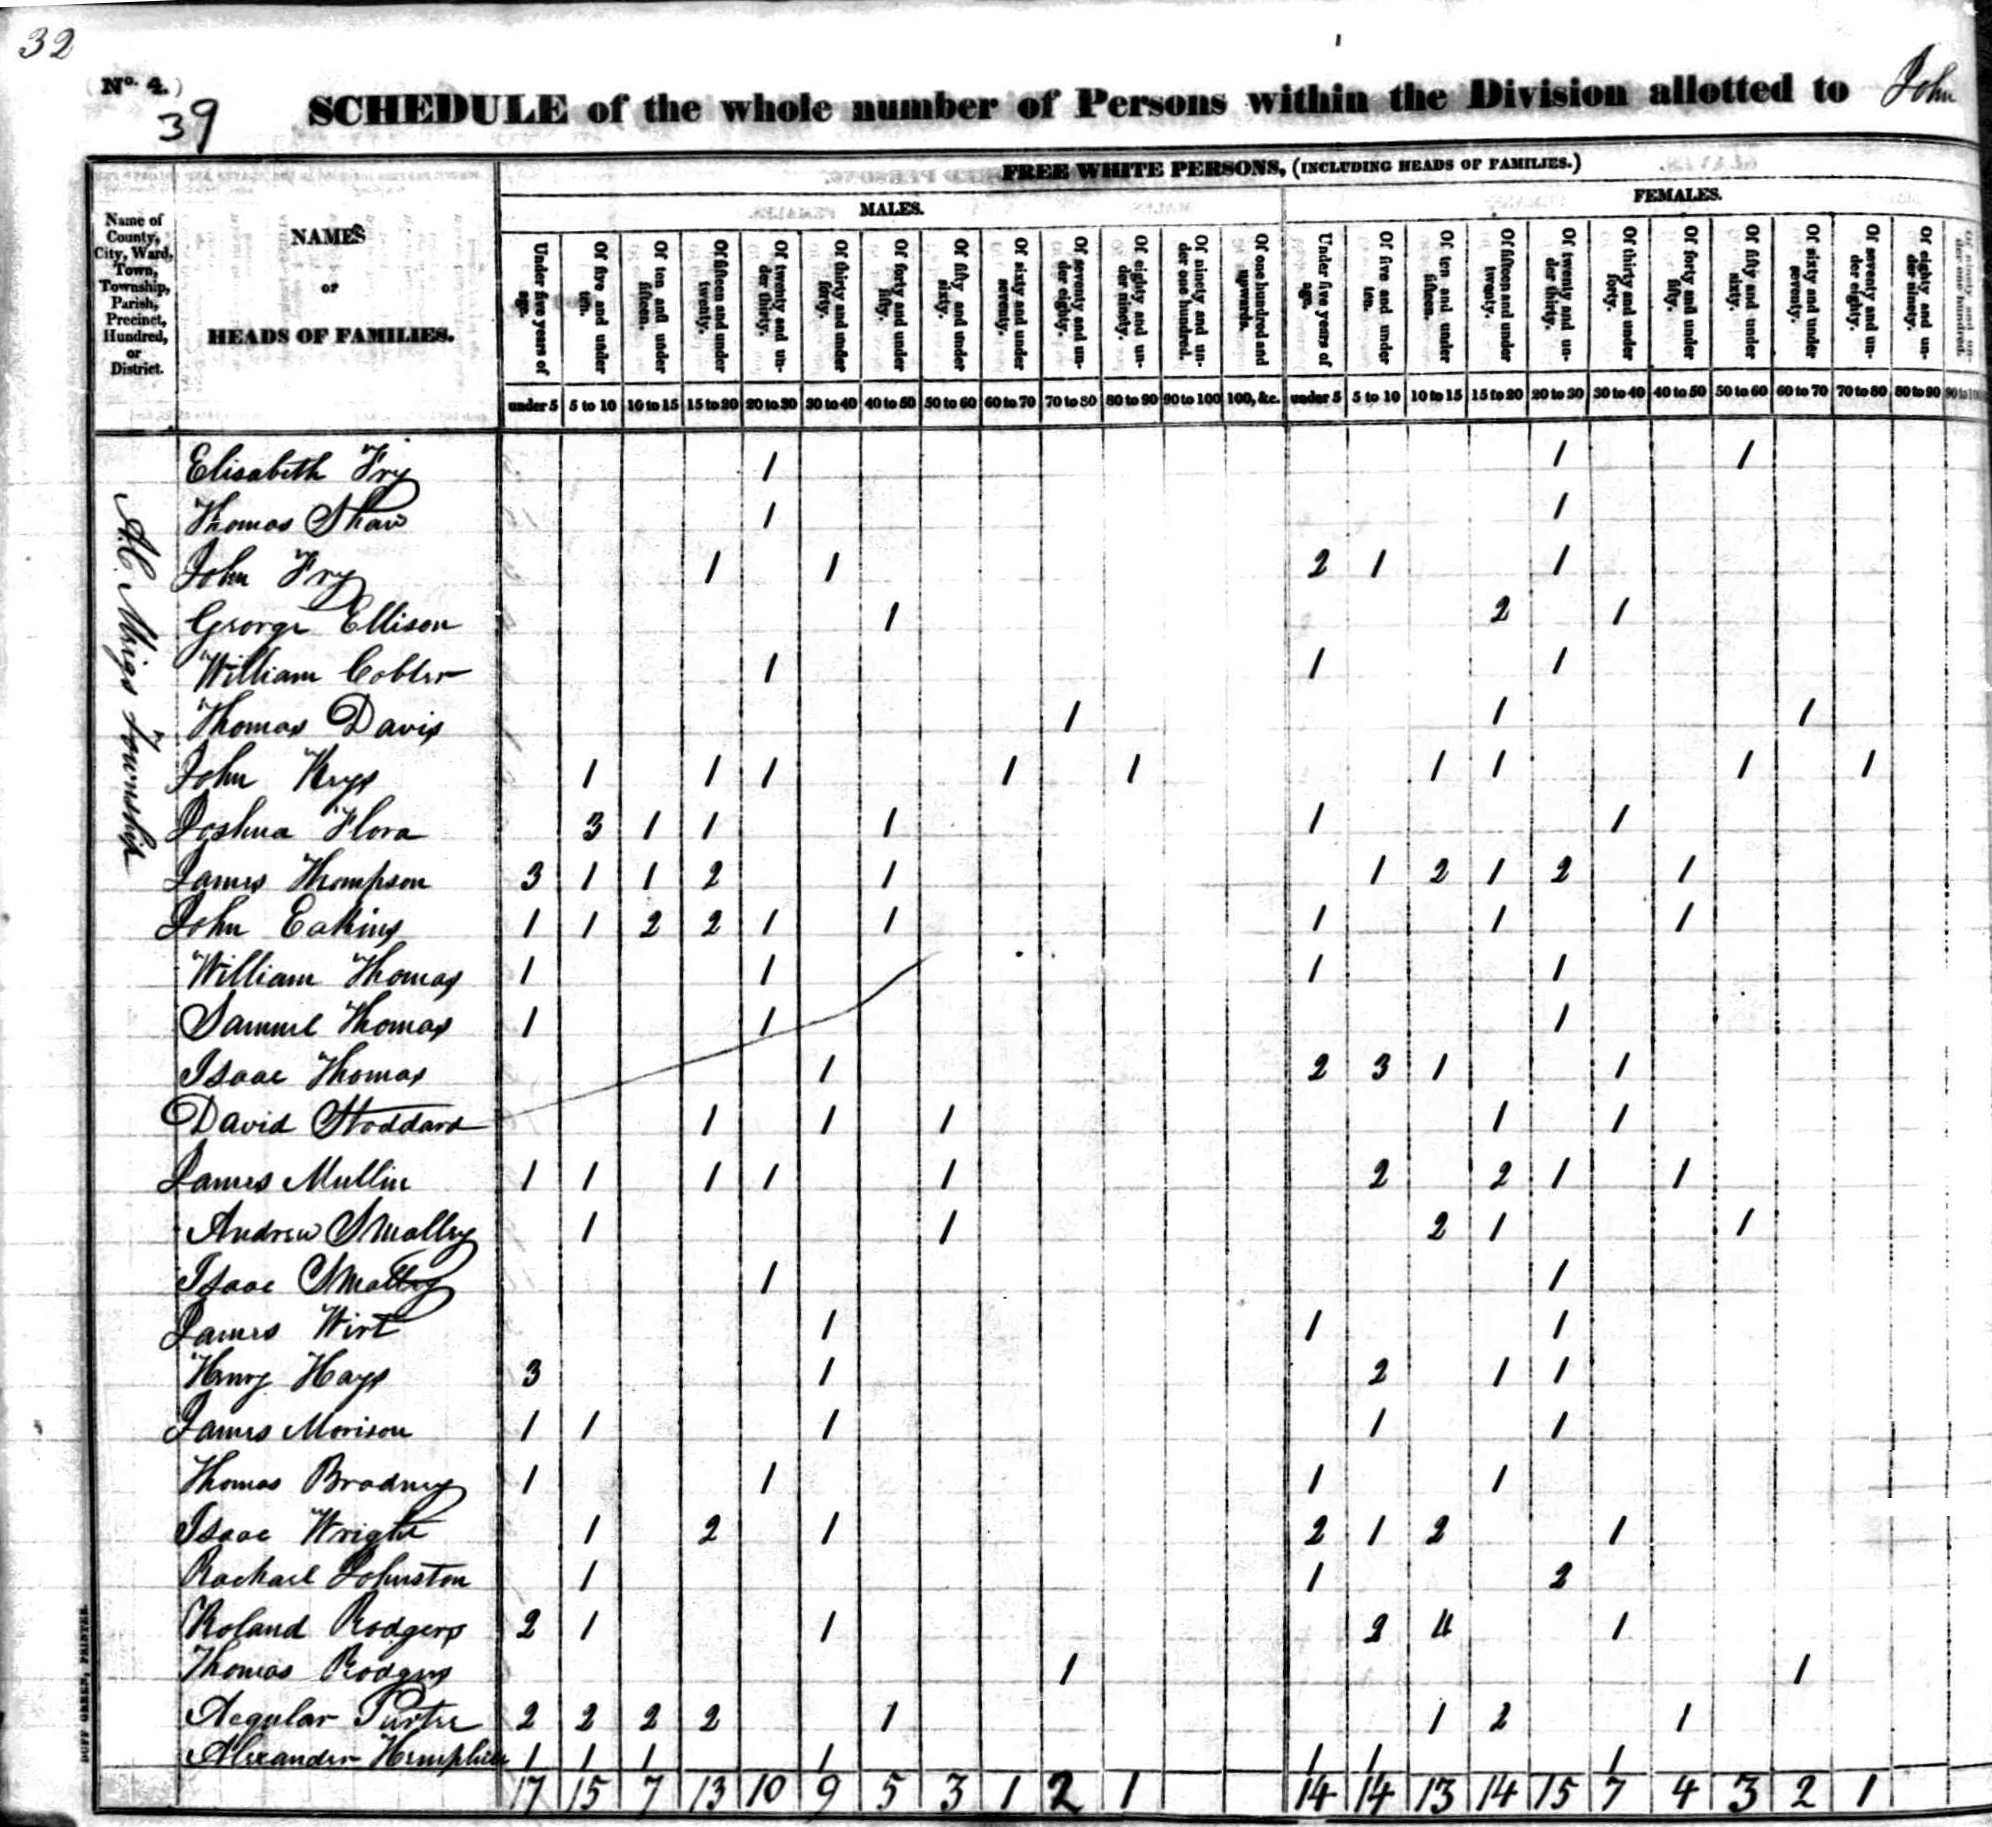 32
No. 4.
39
SCHEDULE of the whole number of Persons within the Division allotted to John
FREE WHITE PERSONS, (INCLUDING HEADS OF FAMILIES.)
MALES. FEMALES.
Name of County, City, Ward, Town, Township, Parish, Precinct, Hundred, or District.
NAMES
OF
HEADS OF FAMILIES.
Under five years of age.
Of five and under ten.
Of ten and under fifteen.
Of fifteen and under twenty.
Of twenty and under thirty.
Of thirty and under forty.
Of forty and under fifty.
Of fifty and under sixty.
Of sixty and under seventy.
Of seventy and under eighty.
Of eighty and under ninety.
Of ninety and under one hundred.
Of one hundred and upwards.
Under five years of age.
Of five and under ten.
Of ten and under fifteen.
Of fifteen and under twenty.
Of twenty and under thirty.
Of thirty and under forty.
Of forty and under fifty.
Of fifty and under sixty.
Of sixty and under seventy.
Of seventy and under eighty.
Of eighty and under ninety.
Of ninety and under one hundred.
under 5 5 to 10 10 to 15 15 to 20 20 to 30 30 to 40 40 to 50 50 to 60 60 to 70 70 to 80 80 to 90 90 to 100 100, &c. under 5 5 to 10 10 to 15 15 to 20 20 to 30 30 to 40 40 to 50 50 to 60 60 to 70 70 to 80 80 to 90 90 to 100
Meigs Township
Elisabeth Fry 1 1 1
Thomas Shaw 1 1
John Fry 1 1 2 1 1
George Ellison 1 2 1
William Cobler 1 1 1
Thomas Davis 1 1 1
John Keys 1 1 1 1 1 1 1 1 1
Joshua Flora 3 1 1 1 1 1
James Thompson 3 1 1 2 1 1 2 1 2 1
John Eakins 1 1 2 2 1 1 1 1 1
William Thomas 1 1 1 1
Samuel Thomas 1 1 1
Isaac Thomas 1 2 3 1 1
David Stoddard 1 1 1 1 1
James Mullin 1 1 1 1 1 2 2 1 1
Andrew Smalley 1 1 2 1 1
Isaac Smalley 1 1
James Wirt 1 1 1
Henry Hays 3 1 2 1 1
James Morison 1 1 1 1 1
Thomas Bradney 1 1 1 1
Isaac Wright 1 2 1 2 1 2 1
Rachael Johnston 1 1 2
Roland Rodgers 2 1 1 2 4 1
Thomas Rodgers 1 1
Aegular Purtee 2 2 2 2 1 1 2 1
Alexander Hemphill 1 1 1 1 1 1 1
17 15 7 13 10 9 5 3 1 2 1 14 14 13 14 15 7 4 3 2 1
DUFF GREEN, PRINTER.